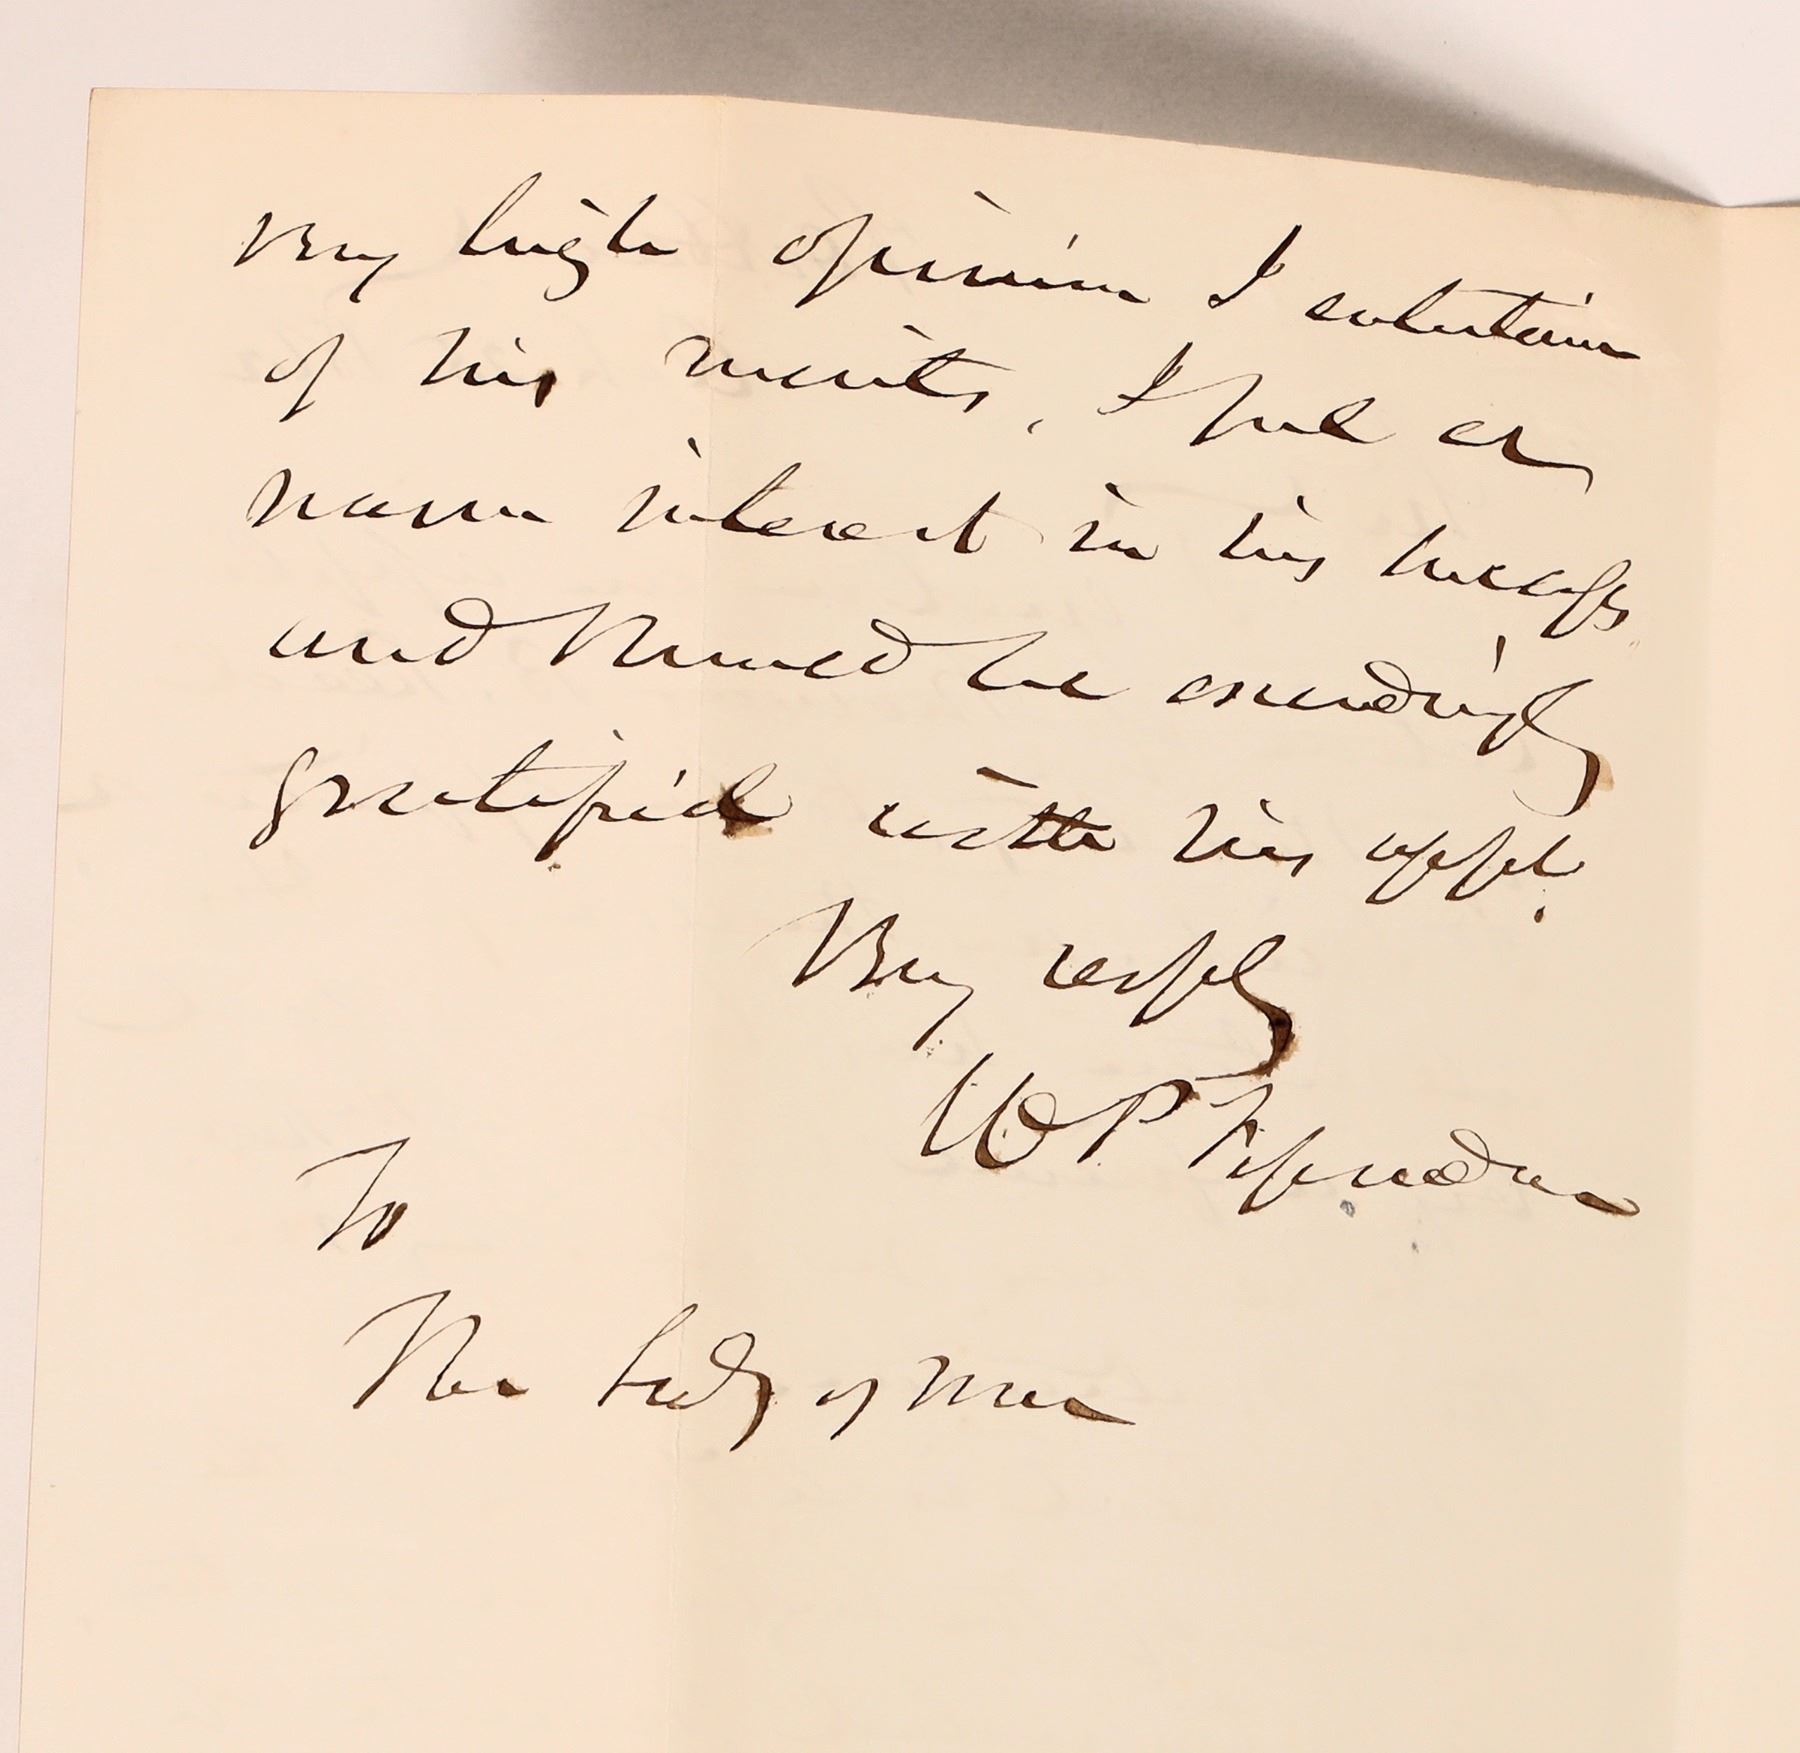 very high opinion I entertain
of his merits, I feel a
warm interest in his success
and should be exceedingly
gratified with his appt.
Very respfly
W P Fessenden
To
The Secty of War